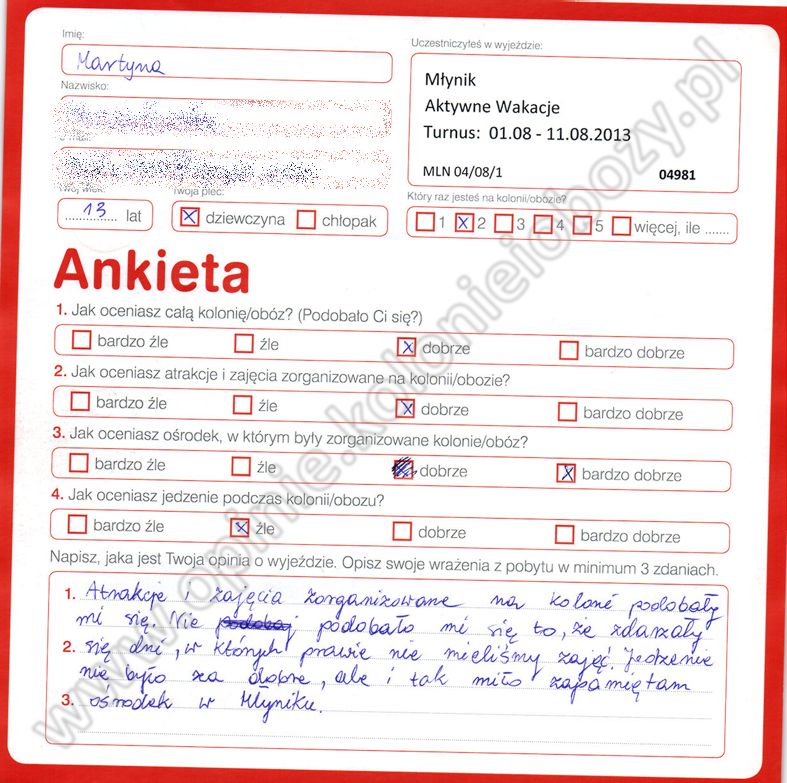 Imię:
Martyna
Nazwisko:
Uczestniczyłeś w wyjeździe:
Młynik
Aktywne Wakacje
Turnus: 01.08 - 11.08.2013
MLN 04/08/1 04981
Twój wiek:
13 lat
Twoja płeć:
dziewczyna chłopak
Który raz jesteś na kolonii/obozie?
1 2 3 4 5 więcej, ile .......
Ankieta
1. Jak oceniasz całą kolonię/obóz? (Podobało Ci się?)
bardzo źle źle dobrze bardzo dobrze
2. Jak oceniasz atrakcje i zajęcia zorganizowane na kolonii/obozie?
bardzo źle źle dobrze bardzo dobrze
3. Jak oceniasz ośrodek, w którym były zorganizowane kolonie/obóz?
bardzo źle źle dobrze bardzo dobrze
4. Jak oceniasz jedzenie podczas kolonii/obozu?
bardzo źle źle dobrze bardzo dobrze
Napisz, jaka jest Twoja opinia o wyjeździe. Opisz swoje wrażenia z pobytu w minimum 3 zdaniach.
1. Atrakcje i zajęcia zorganizowane na koloné podobały
mi się. Nie podobało mi się to, że zdarzały
2. się dni, w których prawie nie mieliśmy zajęć. Jedzenie
nie było za dobre, ale i tak miło zapamiętam
3. ośrodek w Młyniku.
www.opinie.kolonieiobozy.pl